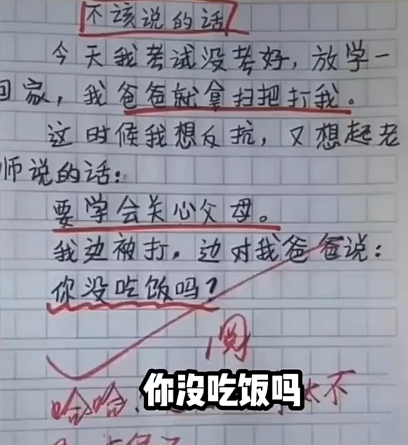 不该说的话
今天我考试没考好，放学一
回家，我爸爸就拿扫把打我。
这时候我想反抗，又想起老
师说的话：
要学会关心父母。
我边被打，边对我爸爸说：
你没吃饭吗？
阅
哈哈！
你没吃饭吗
不